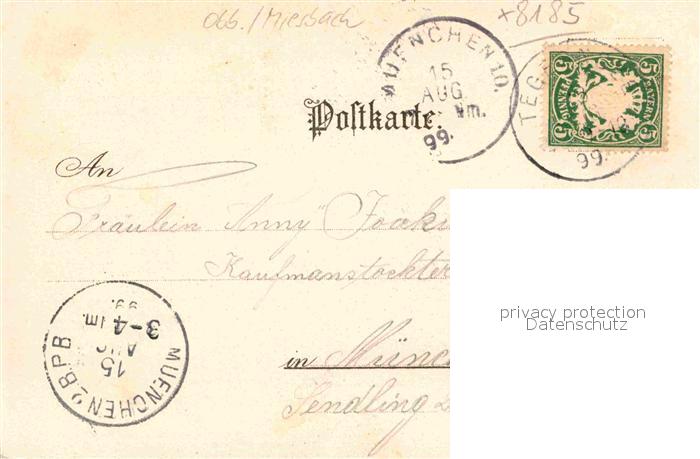 Obb./Miesbach
*8185
MUENCHEN 10.
15
AUG
Vm.
99.
5 BAYERN 5
5 PFENNIG 5
99
Postkarte.
An
Fräulein Anny
Kaufmanstochter
in Münc
Sendling
MUENCHEN 2 B.P.B
15
AUG
3-4 Nm.
99.
privacy protection
Datenschutz